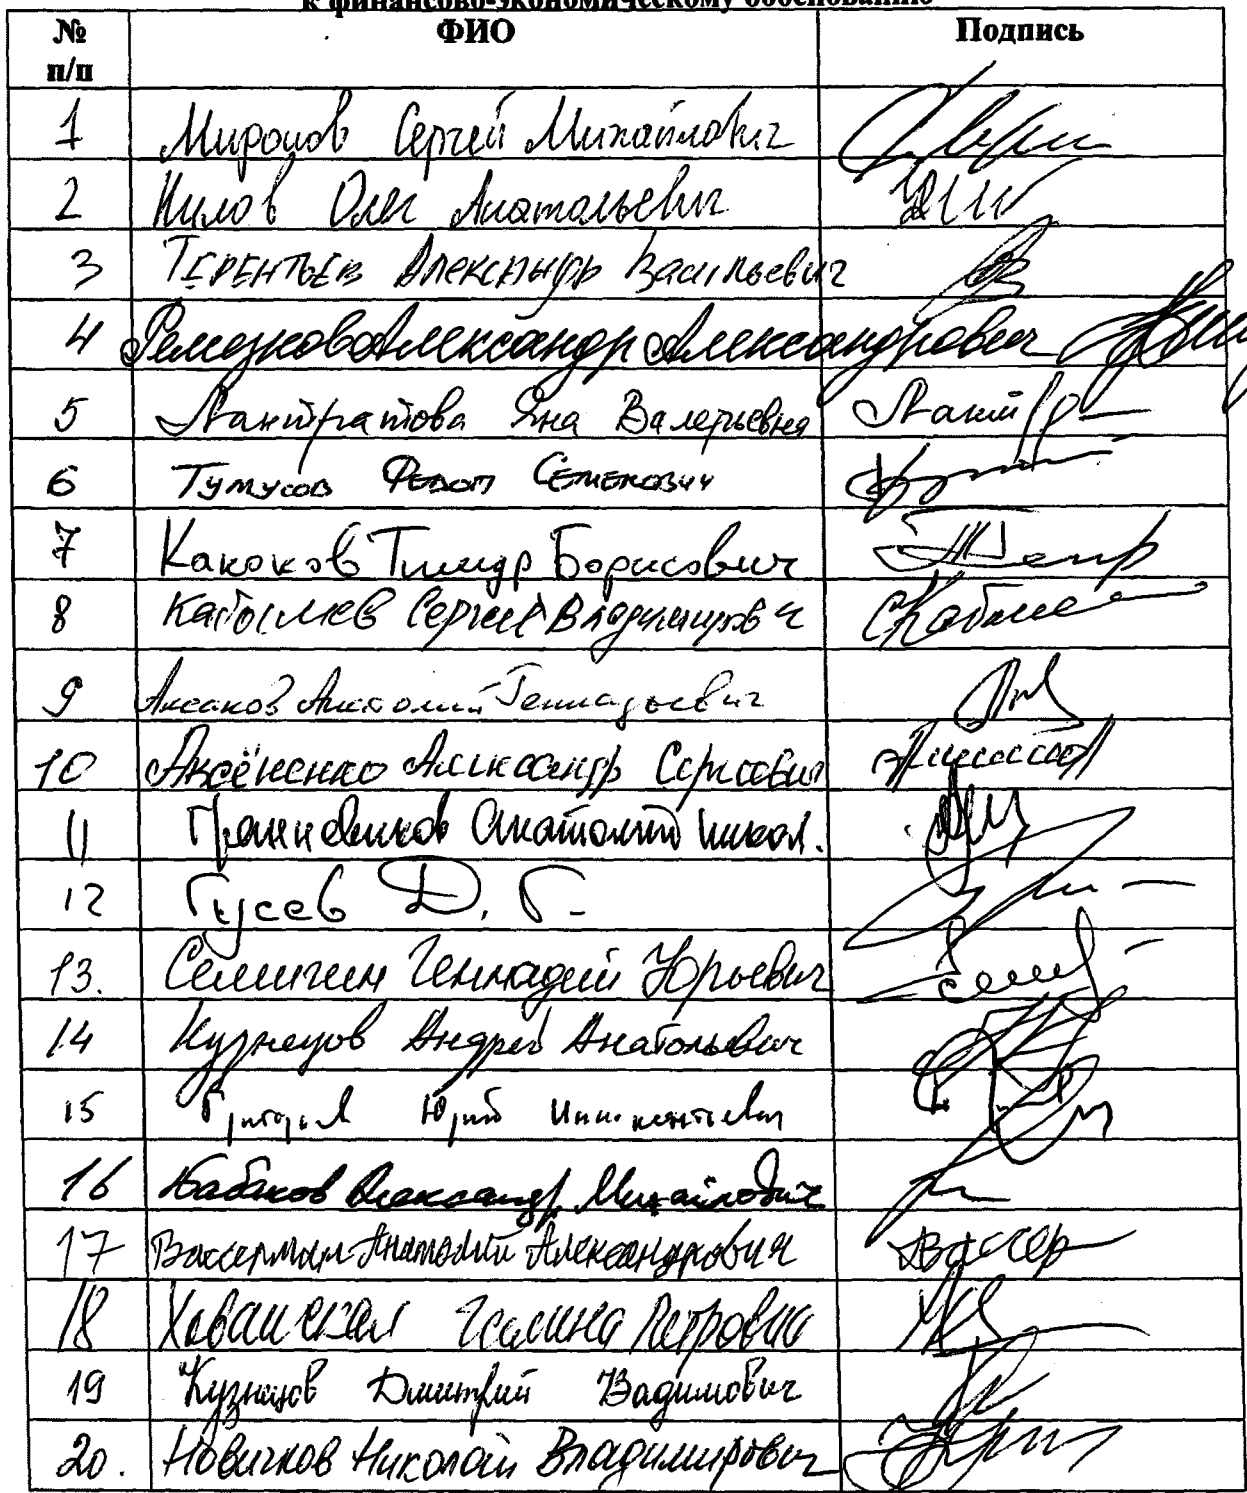 к финансово-экономическому обоснованию
№ п/п ФИО Подпись
1 Миронов Сергей Михайлович
2 Нилов Олег Анатольевич
3 Терентьев Александр Васильевич
4 Ремезков Александр Александрович
5 Лантратова Яна Валерьевна
6 Тумусов Федот Семенович
7 Каноков Тимур Борисович
8 Кабышев Сергей Владимирович
9 Аксаков Анатолий Геннадьевич
10 Аксёненко Александр Сергеевич
11 Грешневиков Анатолий Никол.
12 Гусев Д. Г.
13. Семигин Геннадий Юрьевич
14 Кузнецов Андрей Анатольевич
15 Григорьев Юрий Иннокентьевич
16 Бабаков Александр Михайлович
17 Вассерман Анатолий Александрович Вассер
18 Хованская Галина Петровна
19 Кузнецов Дмитрий Вадимович
20. Новичков Николай Владимирович